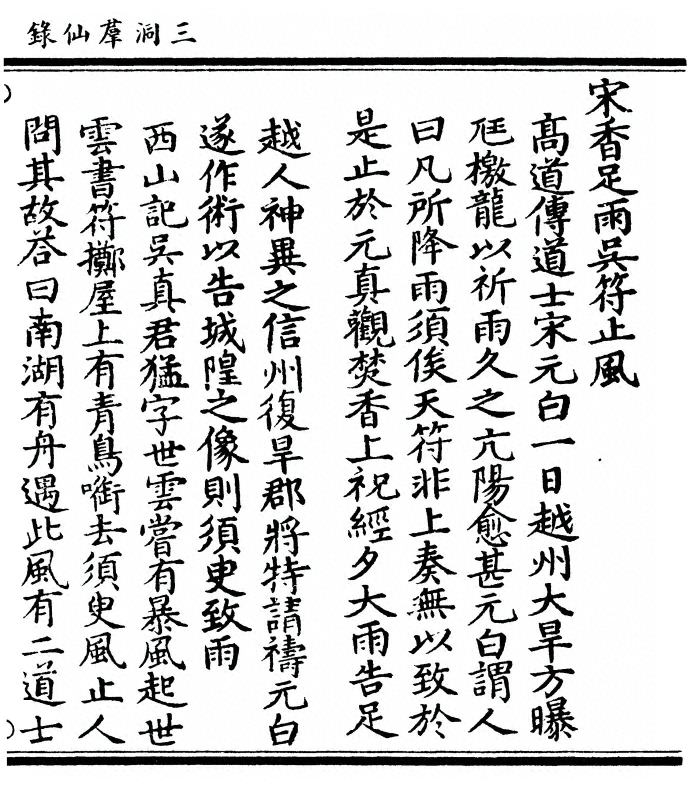 三洞羣仙錄
宋香足雨吳符止風
高道傳道士宋元白一日越州大旱方曝
尫檄龍以祈雨久之亢陽愈甚元白謂人
曰凡所降雨須俟天符非上奏無以致於
是止於元真觀焚香上祝經夕大雨告足
越人神異之信州復旱郡將特請禱元白
遂作術以告城隍之像則須臾致雨
西山記吳真君猛字世雲嘗有暴風起世
雲書符擲屋上有青鳥啣去須臾風止人
問其故荅曰南湖有舟遇此風有二道士